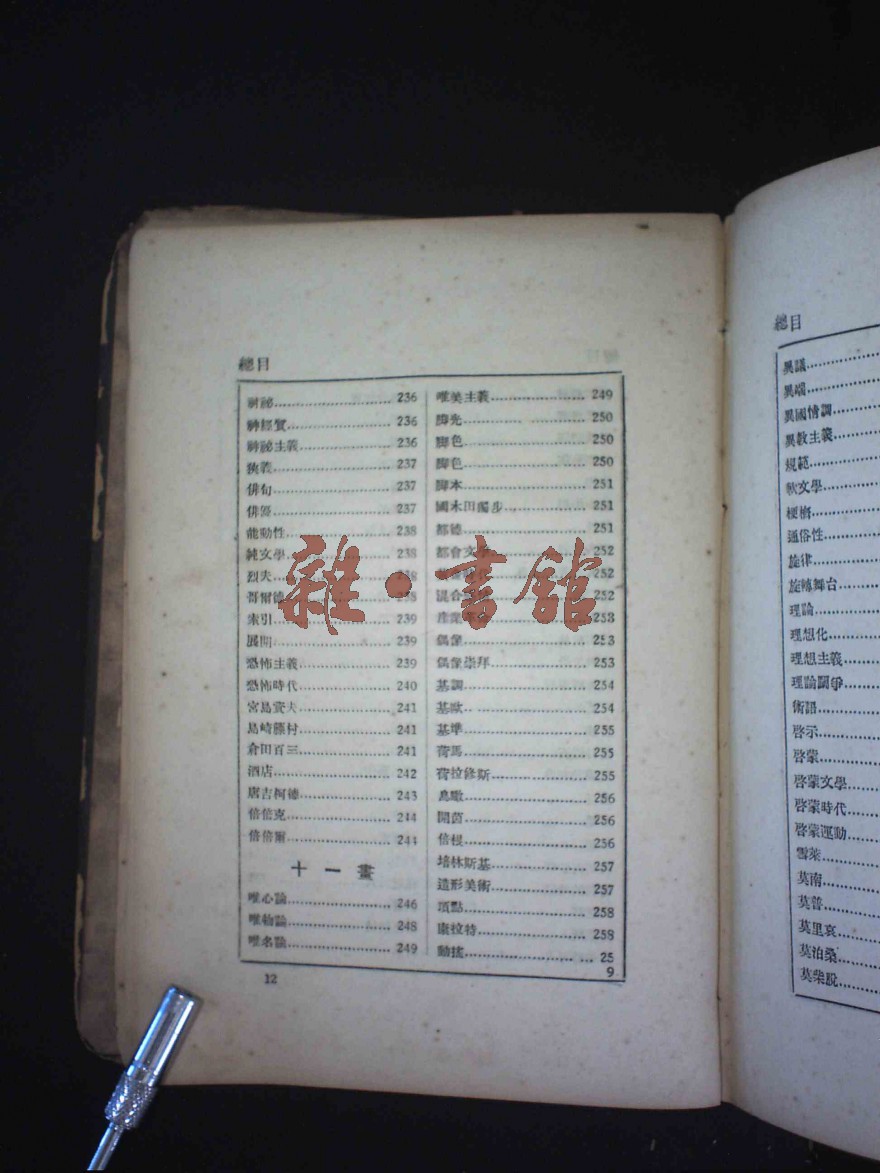 總目
神祕 236
神經質 236
神祕主義 236
狹義 237
俳句 237
俳優 237
能動性 238
純文學 238
烈夫 238
哥爾德 238
索引 239
展開 239
恐怖主義 239
恐怖時代 240
宮島資夫 241
島崎藤村 241
倉田百三 241
酒店 242
唐吉柯德 243
倍倍克 244
倍倍爾 244
十一畫
唯心論 246
唯物論 248
唯名論 249
唯美主義 249
脚光 250
脚色 250
脚色 250
脚本 251
國木田獨步 251
都德 251
都會文學 252
252
混合 252
產業革命 253
偶像 253
偶像崇拜 253
基調 254
基歐 254
基準 255
荷馬 255
荷拉修斯 255
256
開茵 256
倍根 256
培林斯基 257
造形美術 257
頂點 258
康拉特 258
動搖 25
9
12
雜·書館
總目
異議
異端
異國情調
異教主義
規範
軟文學
梗槪
通俗性
旋律
旋轉舞台
理論
理想化
理想主義
理論鬪爭
術語
啓示
啓蒙
啓蒙文學
啓蒙時代
啓蒙運動
雪萊
莫南
莫普
莫里哀
莫泊桑
莫柴脫